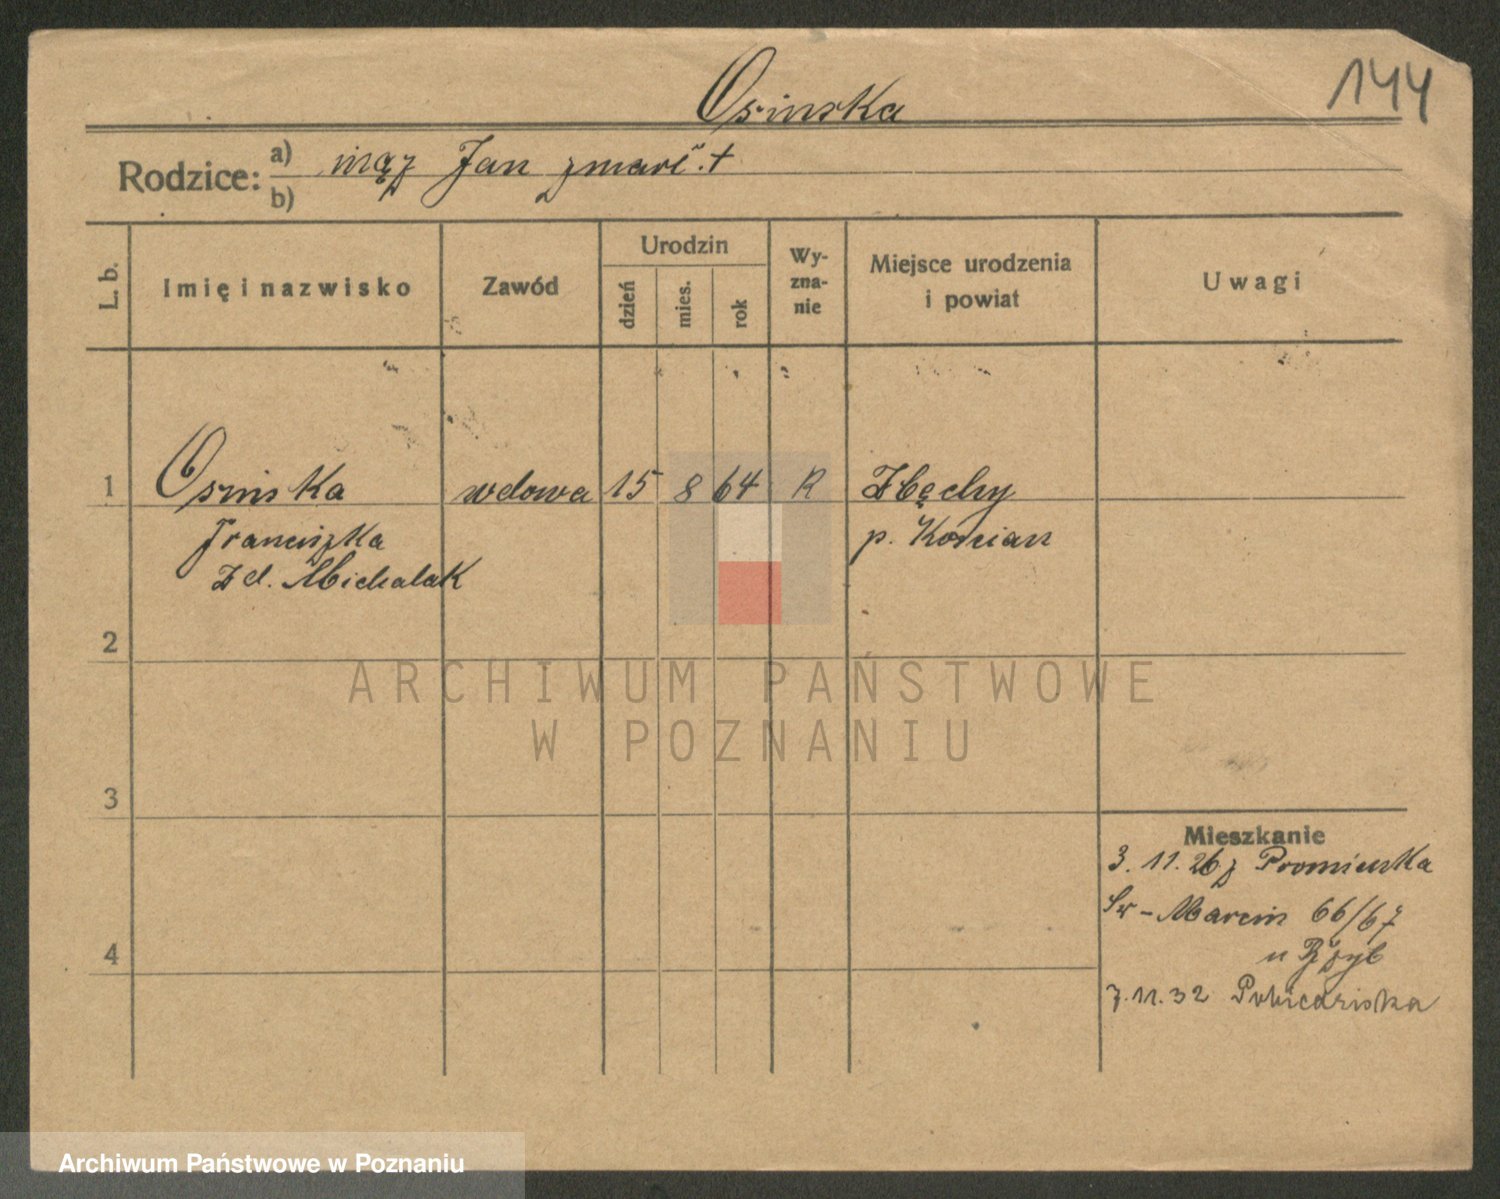 144
Osinska
Rodzice: a) mąż Jan zmarł. +
b)
L. b.
Imię i nazwisko
Zawód
Urodzin
dzień
mies.
rok
Wy-
zna-
nie
Miejsce urodzenia
i powiat
Uwagi
1 Osinska wdowa 15 8 64 R Zbęchy
Franciszka p. Kościan
zd. Michalak
2
3
4
Mieszkanie
3. 11. 26 z
Św-Marcin 66/67
u
7.11.32
ARCHIWUM PAŃSTWOWE
W POZNANIU
Archiwum Państwowe w Poznaniu